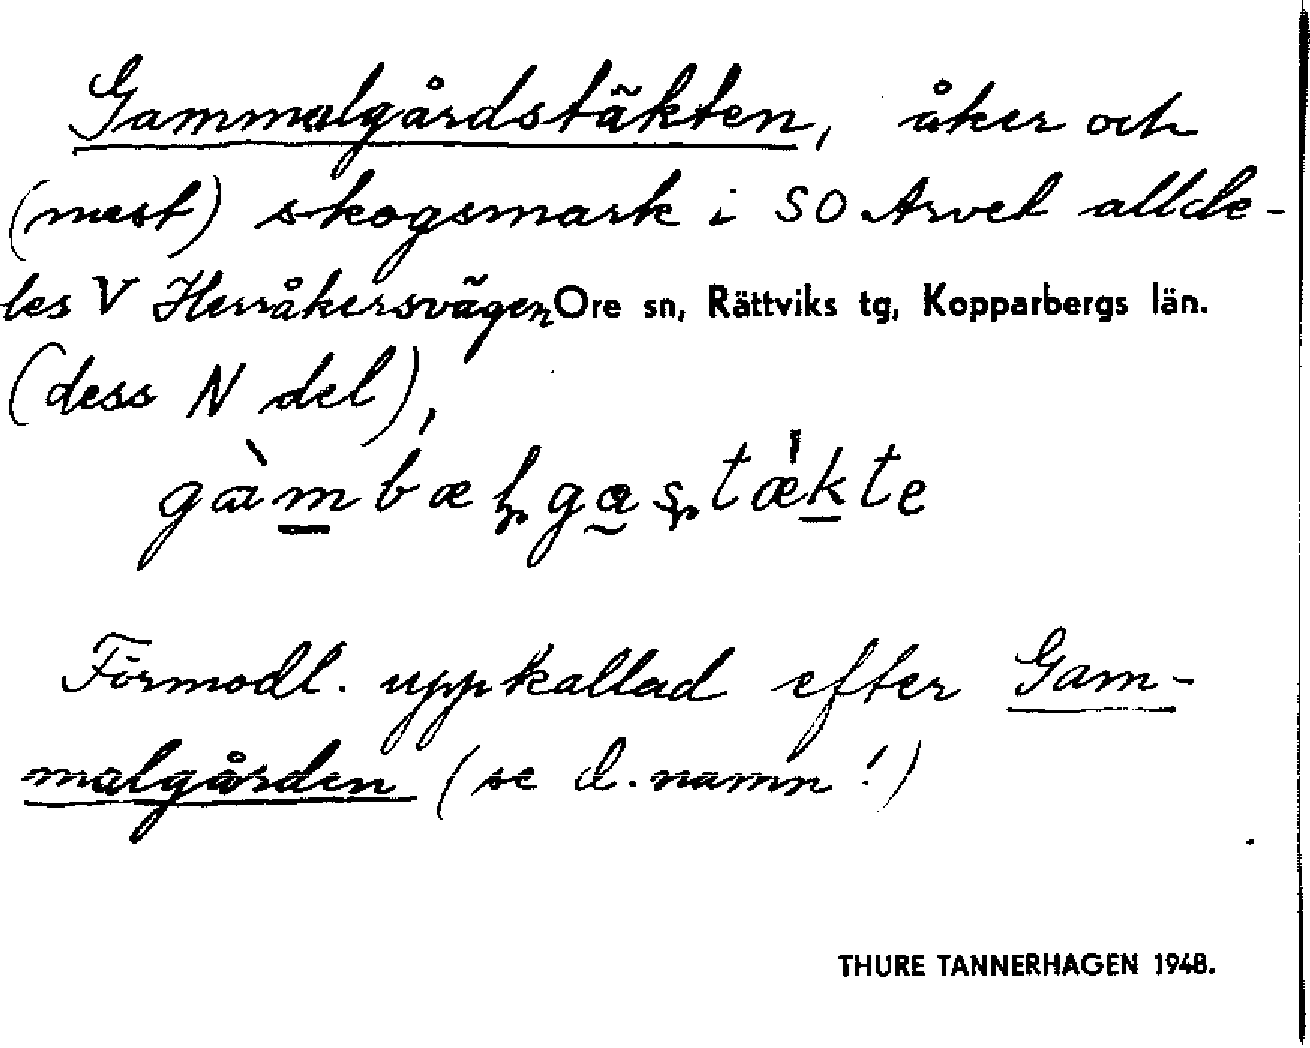 Gammalgårdstäkten, åker och
(mest) skogsmark i SO Arvet allde-
les V Herråkersvägen Ore sn, Rättviks tg, Kopparbergs län.
(dess N del),
Förmodl. uppkallad efter Gam-
malgården (se d. namn!)
THURE TANNERHAGEN 1948.